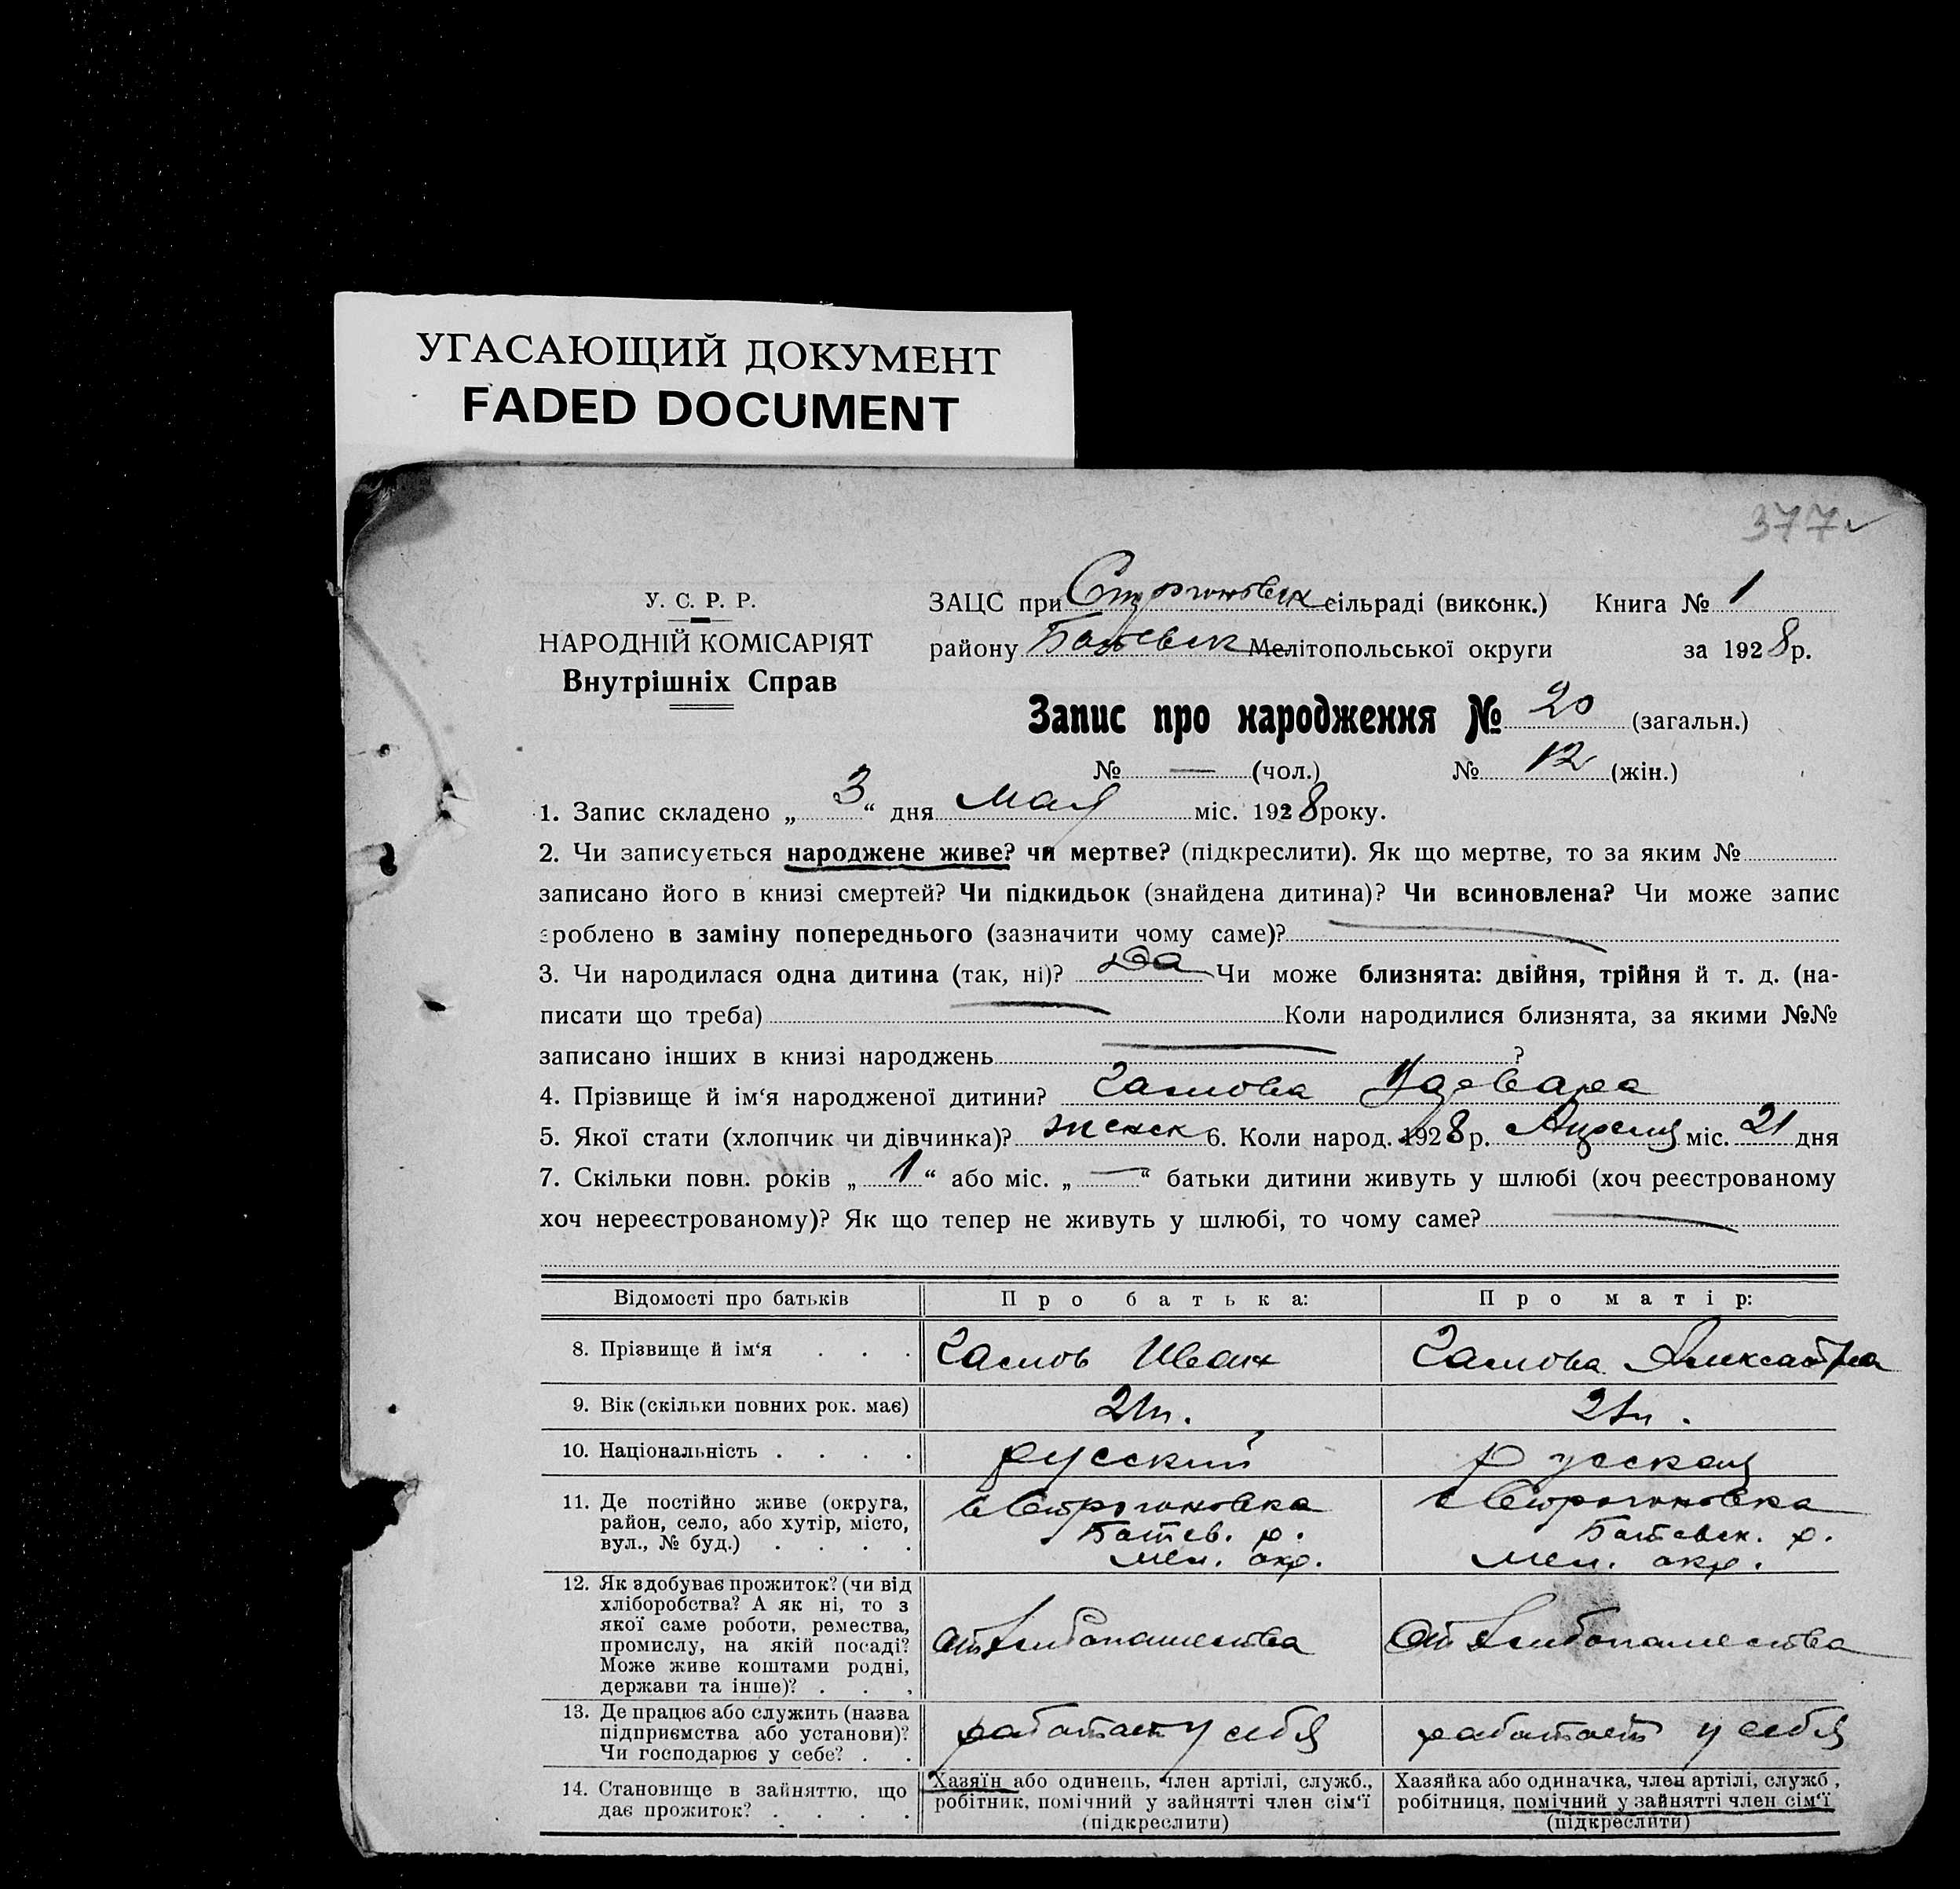 УГАСАЮЩИЙ ДОКУМЕНТ
FADED DOCUMENT
377
У. С. Р. Р.
НАРОДНІЙ КОМІСАРІЯТ
Внутрішніх Справ
ЗАЦС при Строгоновск сільраді (виконк.) Книга № 1
району Ботевск Мелітопольської округи за 1928 р.
Запис про народження № 20 (загальн.)
№ — (чол.) № 12 (жін.)
1. Запис складено „ 3 “ дня Мая міс. 1928 року.
2. Чи записується народжене живе? чи мертве? (підкреслити). Як що мертве, то за яким №
записано його в книзі смертей? Чи підкидьок (знайдена дитина)? Чи всиновлена? Чи може запис
зроблено в заміну попереднього (зазначити чому саме)? —
3. Чи народилася одна дитина (так, ні)? Да Чи може близнята: двійня, трійня й т. д. (на-
писати що треба) — Коли народилися близнята, за якими №№
записано інших в книзі народжень — ?
4. Прізвище й ім‘я народженої дитини?
5. Якої стати (хлопчик чи дівчинка)? женск 6. Коли народ. 1928 р. Апреля міс. 21 дня
7. Скільки повн. років „ 1 “ або міс. „ — “ батьки дитини живуть у шлюбі (хоч реєстрованому
хоч нереєстрованому)? Як що тепер не живуть у шлюбі, то чому саме? —
Відомості про батьків Про батька: Про матір:
8. Прізвище й ім‘я . . . Иван
9. Вік (скільки повних рок. має) 21 л. 21 л.
10. Національність . . . . русский русская
11. Де постійно живе (округа,
район, село, або хутір, місто,
вул., № буд.) . . . .
с Строгоновка
Ботев. р.
Мел. окр.
с Строгоновка
Ботевск. р.
Мел. окр.
12. Як здобуває прожиток? (чи від
хліборобства? А як ні, то з
якої саме роботи, ремества,
промислу, на якій посаді?
Може живе коштами родні,
держави та інше)? . . .
от хлебопашества
от хлебопашества
13. Де працює або служить (назва
підприємства або установи)?
Чи господарює у себе? . .
работает у себя
работает у себя
14. Становище в зайняттю, що
дає прожиток? . . . .
Хазяїн або одинець, член артілі, служб.,
робітник, помічний у зайнятті член сім‘ї
(підкреслити)
Хазяйка або одиначка, член артілі, служб ,
робітниця, помічний у зайнятті член сім‘ї
(підкреслити)